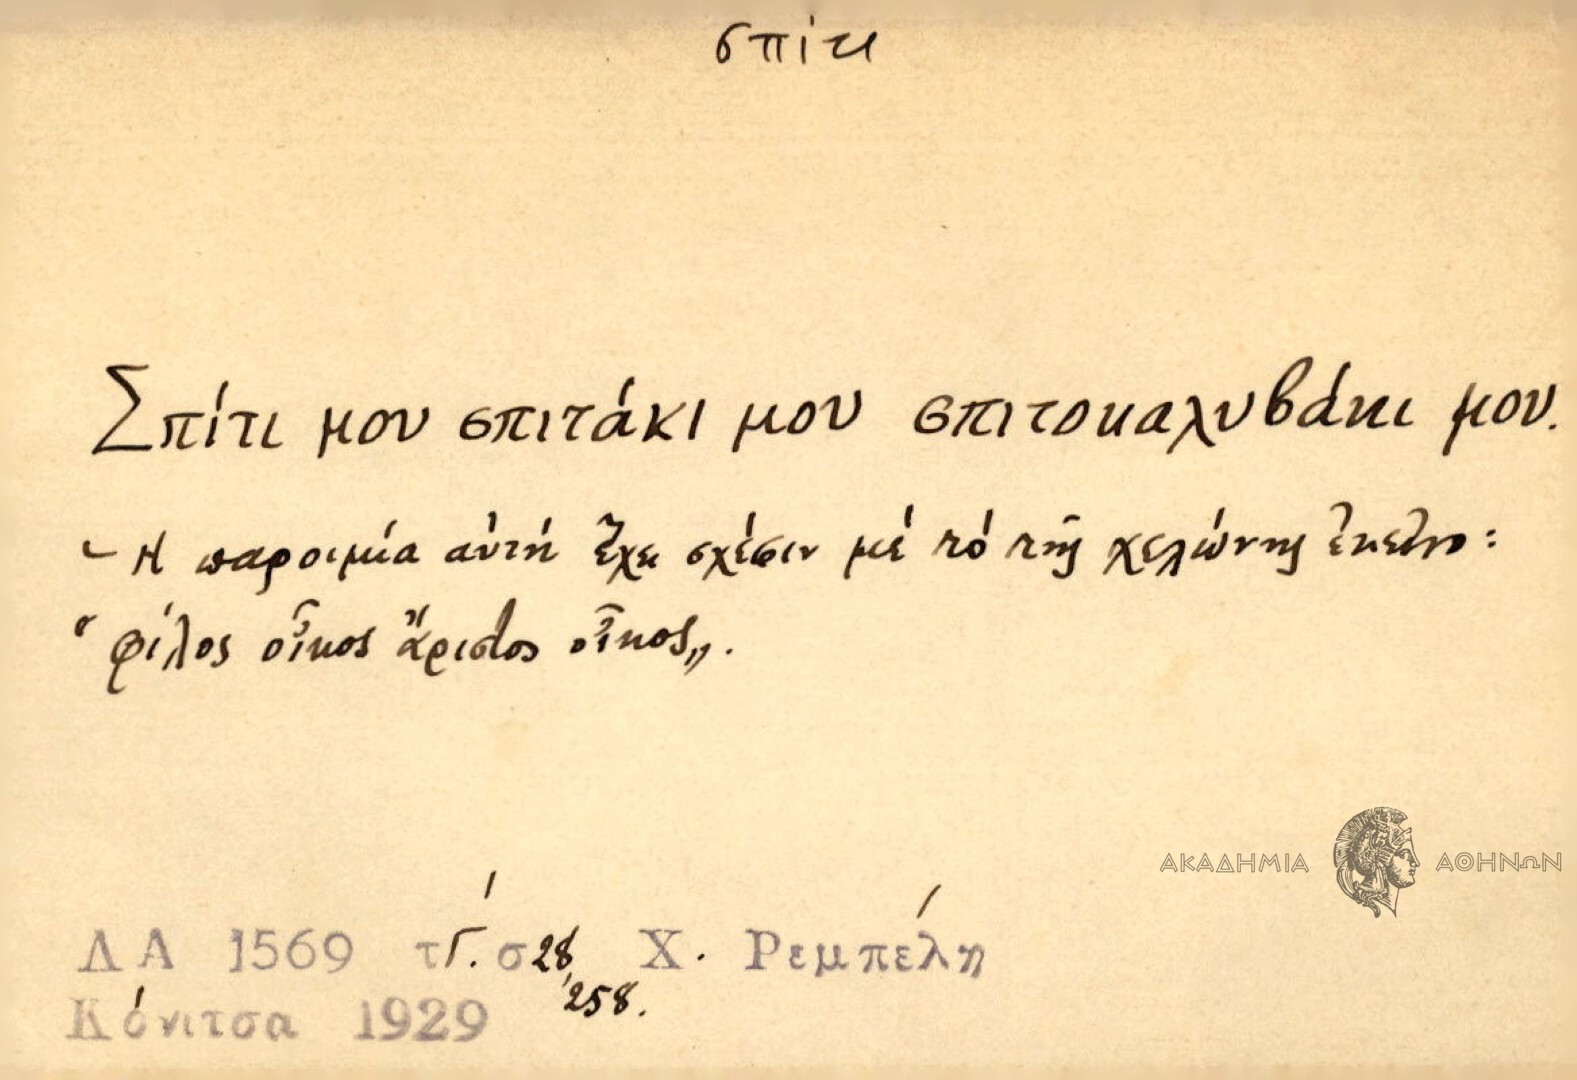 σπίτι
Σπίτι μου σπιτάκι μου σπιτοκαλυβάκι μου.
– Η παροιμία αὐτή ἔχει σχέσιν μέ τό τῆς χελώνης ἐκεῖνο:
“φίλος οἶκος ἄριστος οἶκος„.
ΑΚΑΔΗΜΙΑ ΑΘΗΝΩΝ
ΛΑ 1569 τΓ΄. σ28, 258. Χ. Ρεμπέλη
Κόνιτσα 1929